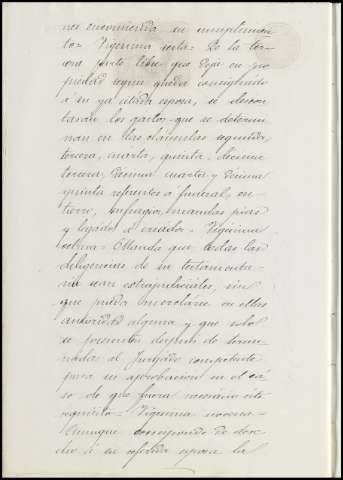 nes encomienda su cumplimien
to= Vigésima sexta= De la ter
cera parte libre que deja en pro
piedad segun queda consignado
á su ya citada esposa, se descon
tarán los gastos que se determi
nan en las cláusulas segunda,
tercera, cuarta, quinta, décima
tercera, décima cuarta y décima
quinta referentes á funeral, en-
tierro, sufragio, mandas pias
y legados á criados= Vigésima
octava= Manda que todas las
diligencias de su testamenta-
ria sean extrajudiciales, sin
que pueda mezclarse en ellas
autoridad alguna y que solo
se presenten después de termi
nadas al Juzgado competente
para su aprobación en el ca-
so de que fuera necesario este
requisito= Vigésima novena=
Aunque corresponde de dere
cho á su referida esposa la